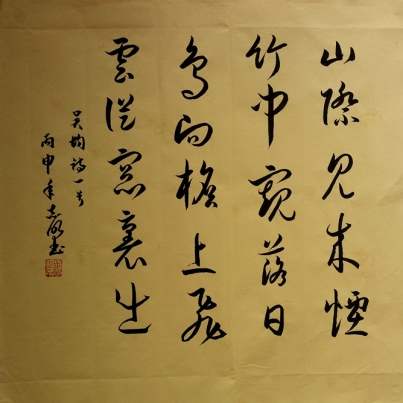 山際見来煙
竹中窺落日
鳥向檐上飛
雲從窗裏出
吴均詩一首
丙申年書